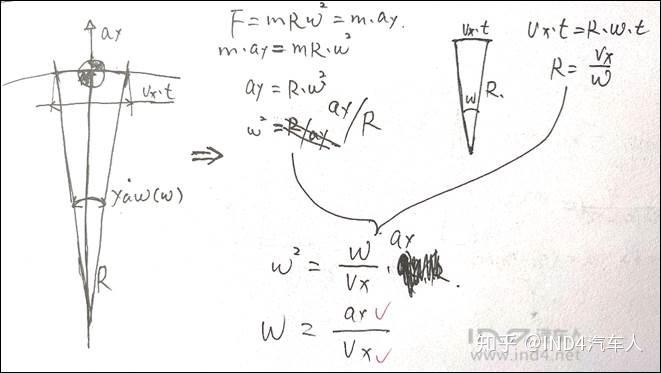 ay
Vx·t
yaw(w)
R
F=mRw²=m·ay.
m·ay=mR·w²
ay=R·w²
w²=ay/R
⇒
w
R.
Vx·t=R·w·t
R=Vx/w
w²=w/Vx·ay
w=ay✓/Vx✓
知乎 @IND4汽车人
www.ind4.net